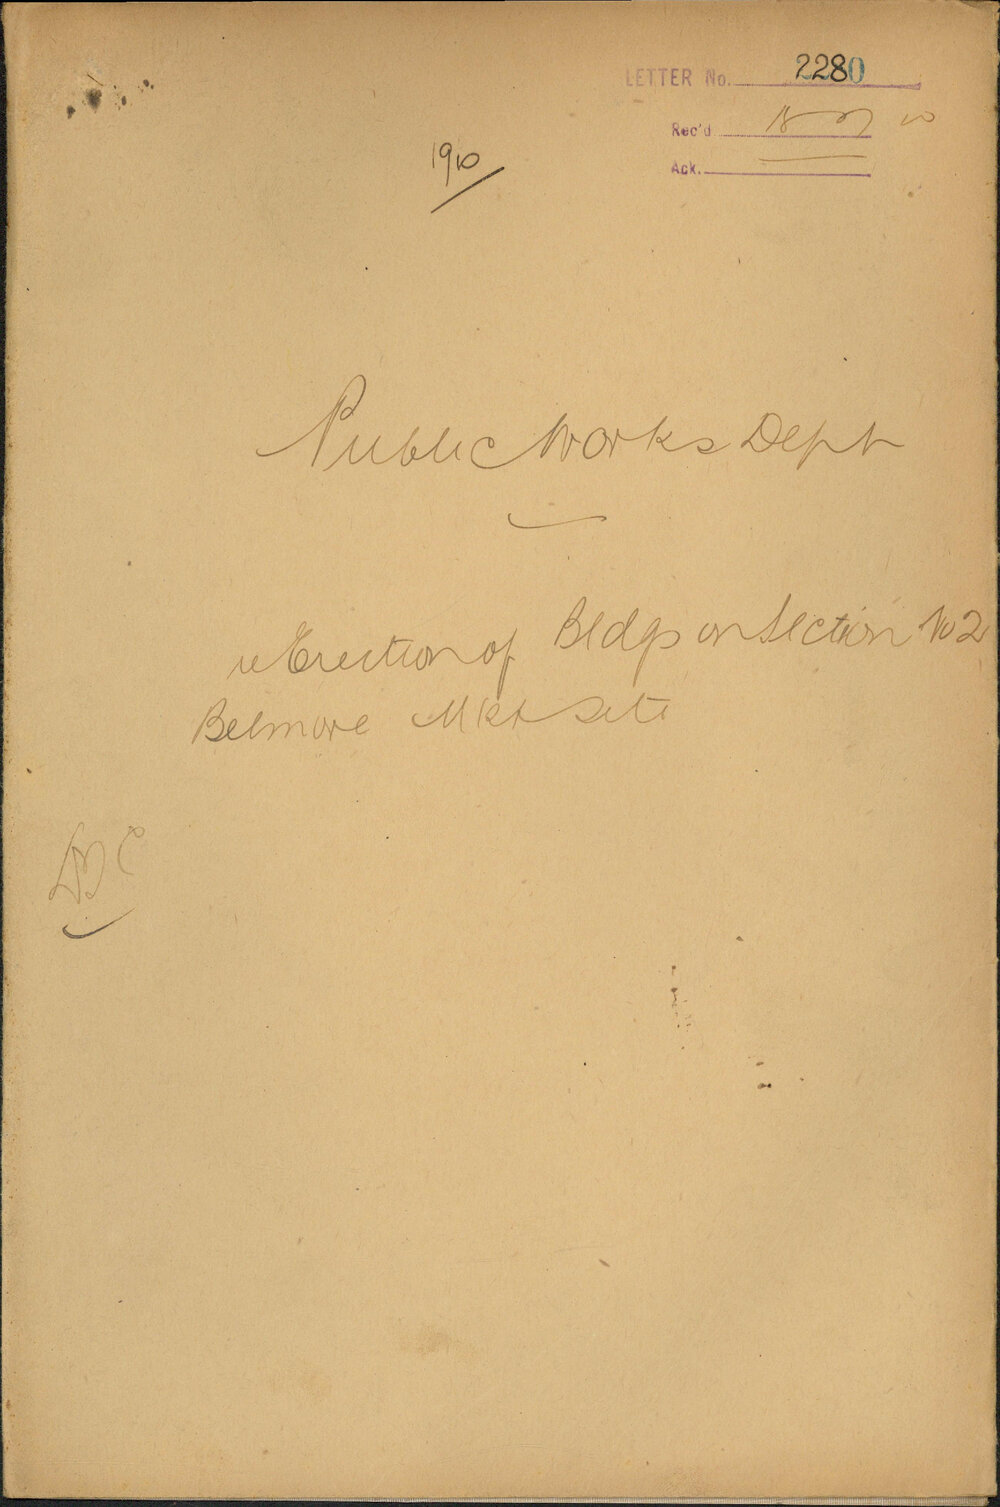 LETTER No. 2280
Rec'd
Ack.
1910
Public Works Dept
re Erection of Bldgs on Section No 2
Belmore Mkt Site